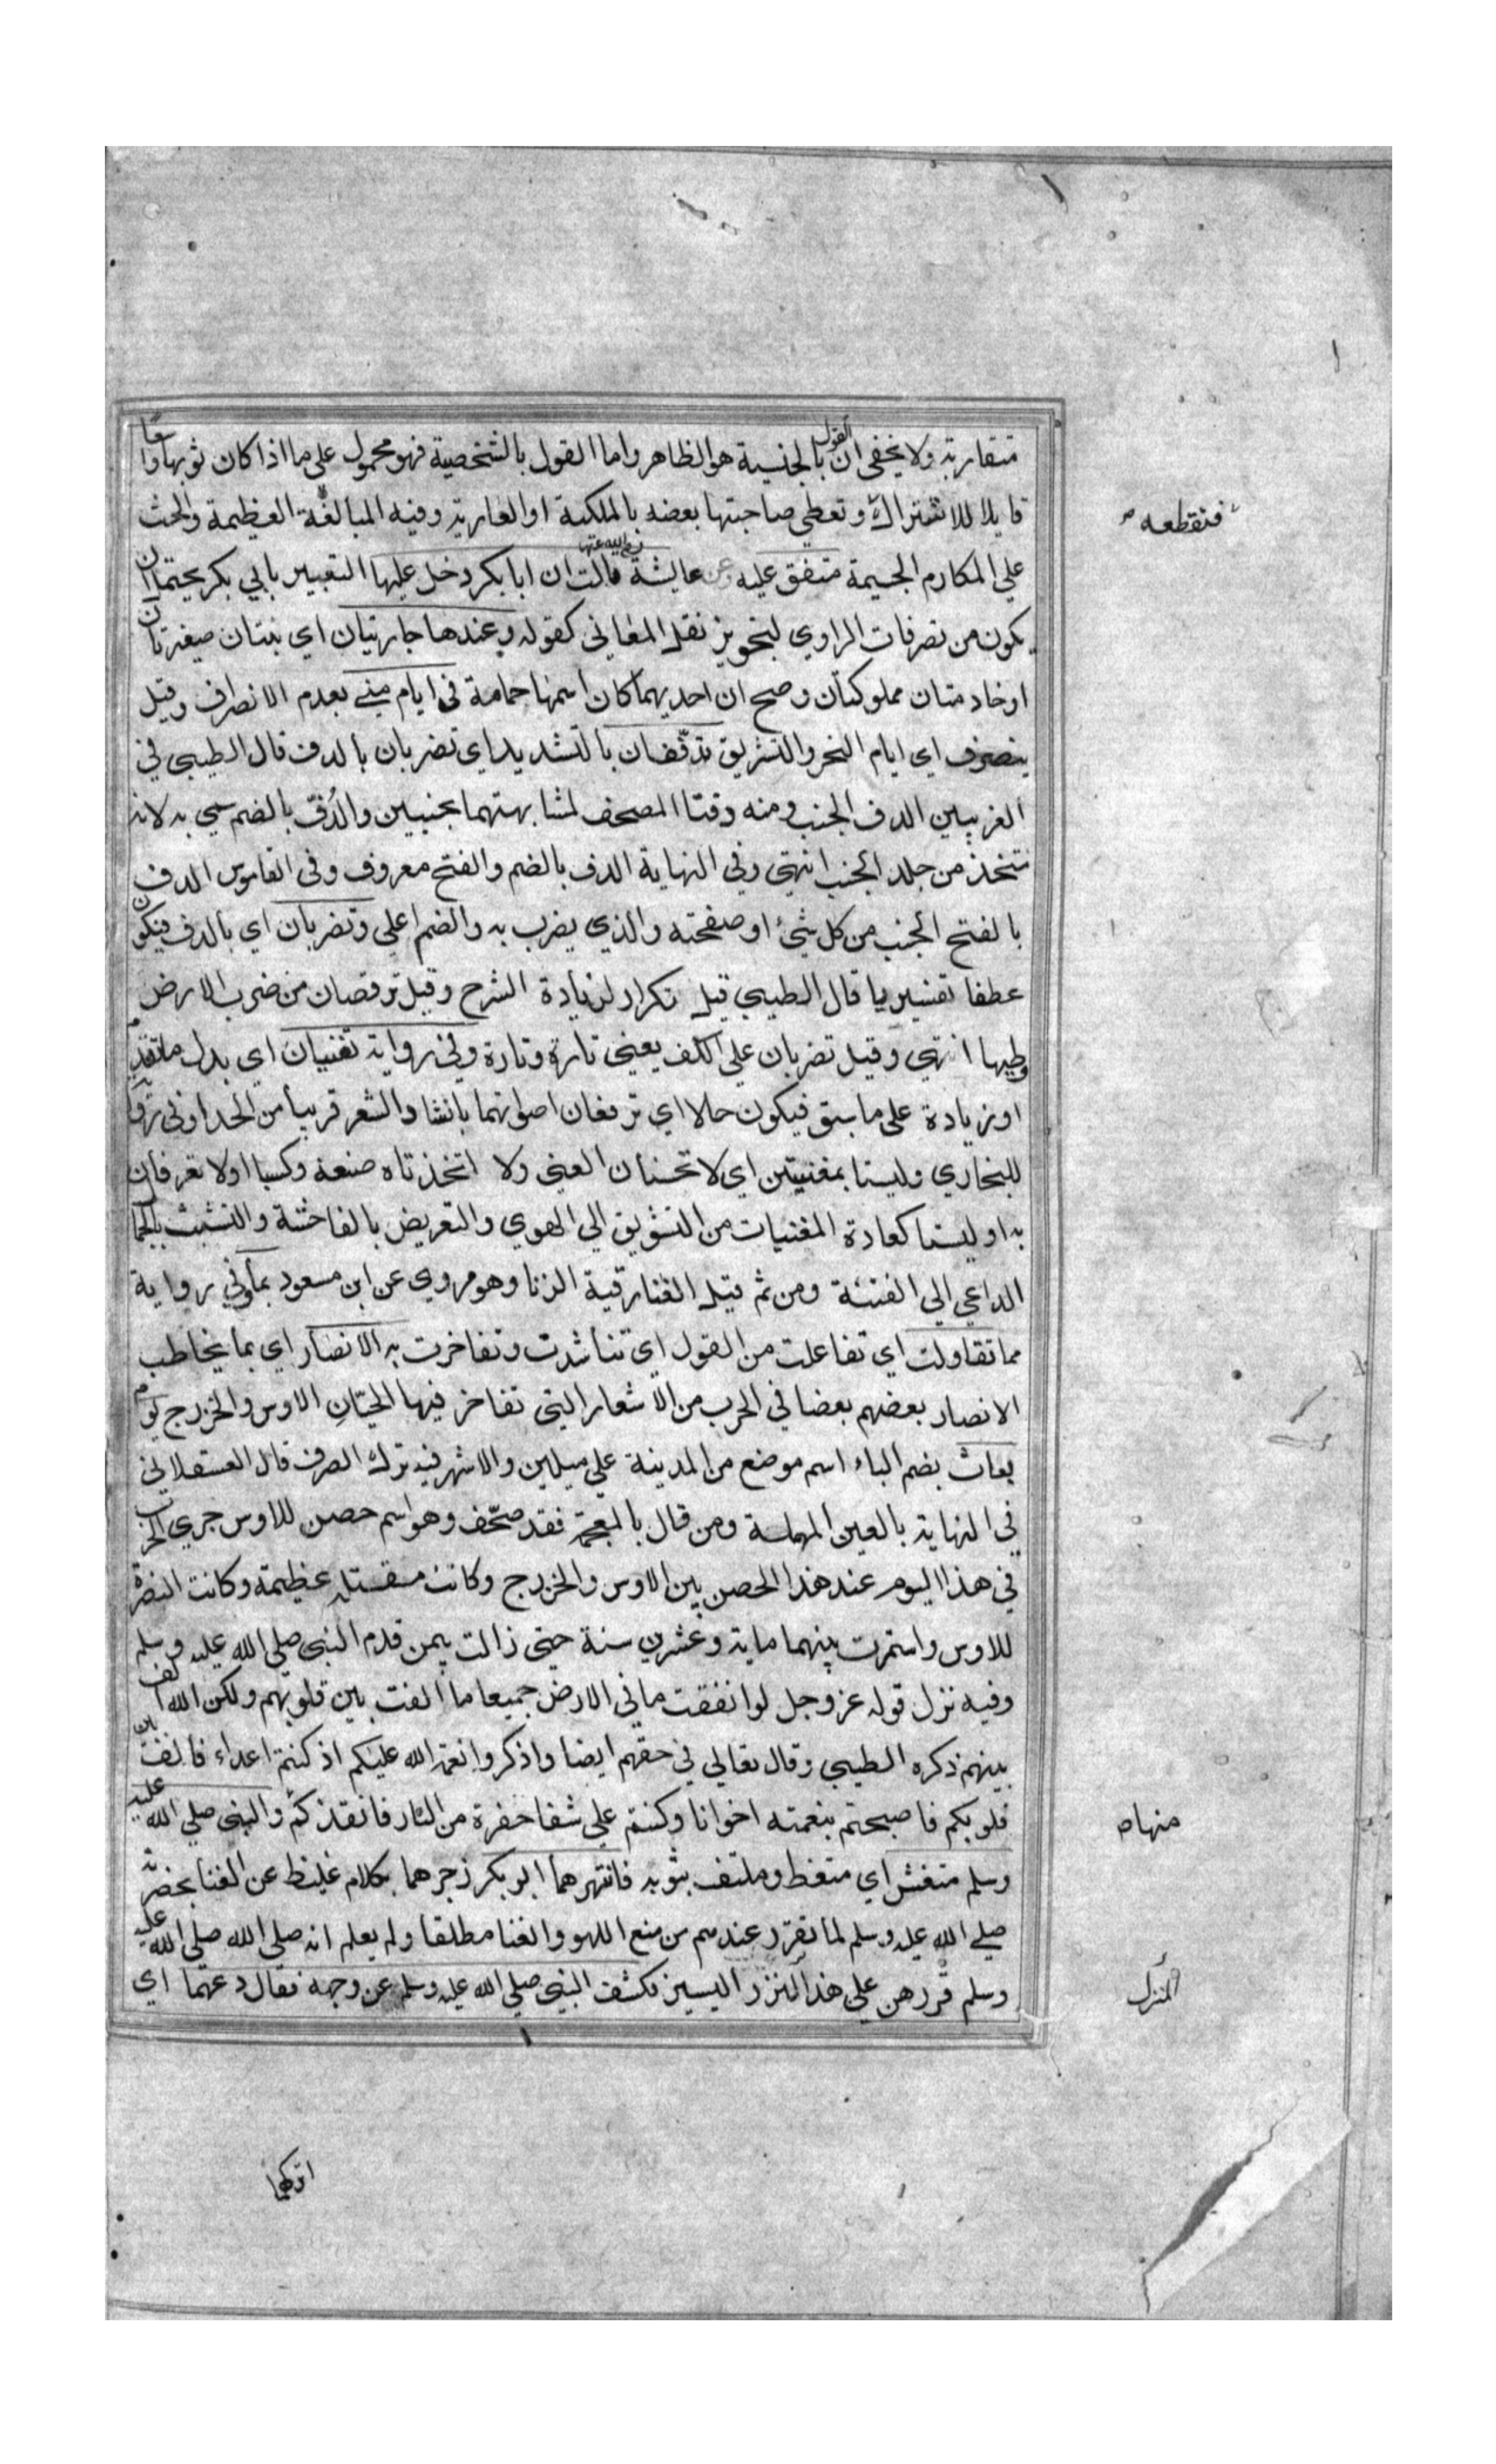 متقاربة ولا يخفى ان القول بالجنسية هو الظاهر واما القول بالشخصية فهو محمول على ما اذا كان ثوبها واسعًا
قابلا للاشتراك وتعطي صاحبتها بعضه بالملكية او العارية وفيه المبالغة العظيمة والحث
فتقطعه
على المكارم الجسيمة متفق عليه وعن عايشة رضي الله عنها قالت ان ابا بكر دخل عليها التعبير بابي بكر يحتمل ان
يكون من تصرفات الراوي لتجويز نقل المعاني كقوله وعندها جاريتان اي بنتان صغيرتان
او خادمتان مملوكتان وصح ان احديهما كان اسمها حمامة في ايام منى بعدم الانصراف وقيل
ينصرف اي ايام النحر والتشريق تدفّفان بالتشديد اي تضربان بالدف قال الطيبي في
الغريبين الدف الجنب ومنه دفتا المصحف لمشابهتهما بجنبين والدُفّ بالضم سمي به لانه
تتخذ من جلد الجنب انتهى وفي النهاية الدف بالضم والفتح معروف وفي القاموس الدف
بالفتح الجنب من كل شيئ او صفحته والذي يضرب به والضم اعلى وتضربان اي بالدف فيكون
عطفا تفسيريا قال الطيبي قيل تكرار لزيادة الشرح وقيل ترقصان من ضرب الارض
وطيها انتهى وقيل تضربان على الكف يعني تارة وتارة وفي رواية تغنيان اي بدل ما تقدم
او زيادة على ما سبق فيكون حالا اي ترفعان اصواتهما بانشاد الشعر قريبا من الحدا وفي رواية
للبخاري وليستا بمغنيتين اي لا تحسنان الغنى ولا اتخذتاه صنعة وكسبا او لا تعرفان
به او ليستا كعادة المغنيات من التشويق الى الهوي والتعريض بالفاحشة والتشبث بالجمال
الداعي الى الفتنة ومن ثم قيل الغنا رقية الزنا وهو مروي عن ابن مسعود بما وفي رواية
مما تقاولت اي تفاعلت من القول اي تناشدت وتفاخرت به الانصار اي بما يخاطب
الانصار بعضهم بعضا في الحرب من الاشعار التي تفاخر فيها الحيّانِ الاوس والخزرج يوم
بعاث بضم الباء اسم موضع من المدينة على ميلين والاشهر فيه ترك الصرف قال العسقلاني
في النهاية بالعين المهملة ومن قال بالمعجمة فقد صحّف وهو اسم حصن للاوس جري الحرب
في هذا اليوم عند هذا الحصن بين الاوس والخزرج وكانت مقتلة عظيمة وكانت النصرة
للاوس واستمرت بينهما ماية وعشرين سنة حتى زالت بيمن قدم النبي صلى الله عليه وسلم
وفيه نزل قوله عز وجل لو انفقت ما في الارض جميعا ما الفت بين قلوبهم ولكن الله الف
بينهم ذكره الطيبي وقال تعالى في حقهم ايضا واذكروا نعمة الله عليكم اذ كنتم اعداء فالف بين
قلوبكم فاصبحتم بنعمته اخوانا وكنتم على شفا حفرة من النار فانقذكم والنبي صلى الله عليه
منها
وسلم متغش اي متغط وملتف بثوبه فانتهرهما ابو بكر زجرهما بكلام غليظ عن الغنا بحضرته
صلى الله عليه وسلم لما تقرر عندهم من منع اللهو والغنا مطلقا ولم يعلم انه صلى الله صلى الله عليه
وسلم قررهن على هذا النزر اليسير فكشف النبي صلى الله عليه وسلم عن وجهه فقال دعهما اي
المنزل
اتركهما